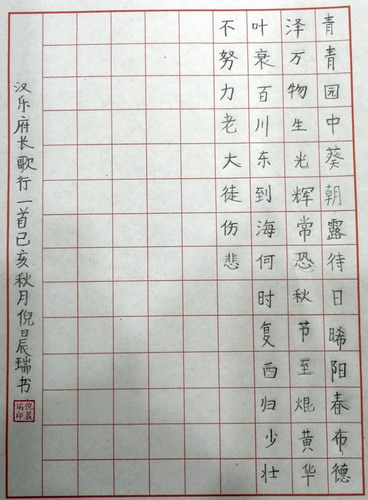 青青园中葵朝露待日晞阳春布德
泽万物生光辉常恐秋节至焜黄华
叶衰百川东到海何时复西归少壮
不努力老大徒伤悲
汉乐府长歌行一首己亥秋月倪晨瑞书
倪晨瑞印